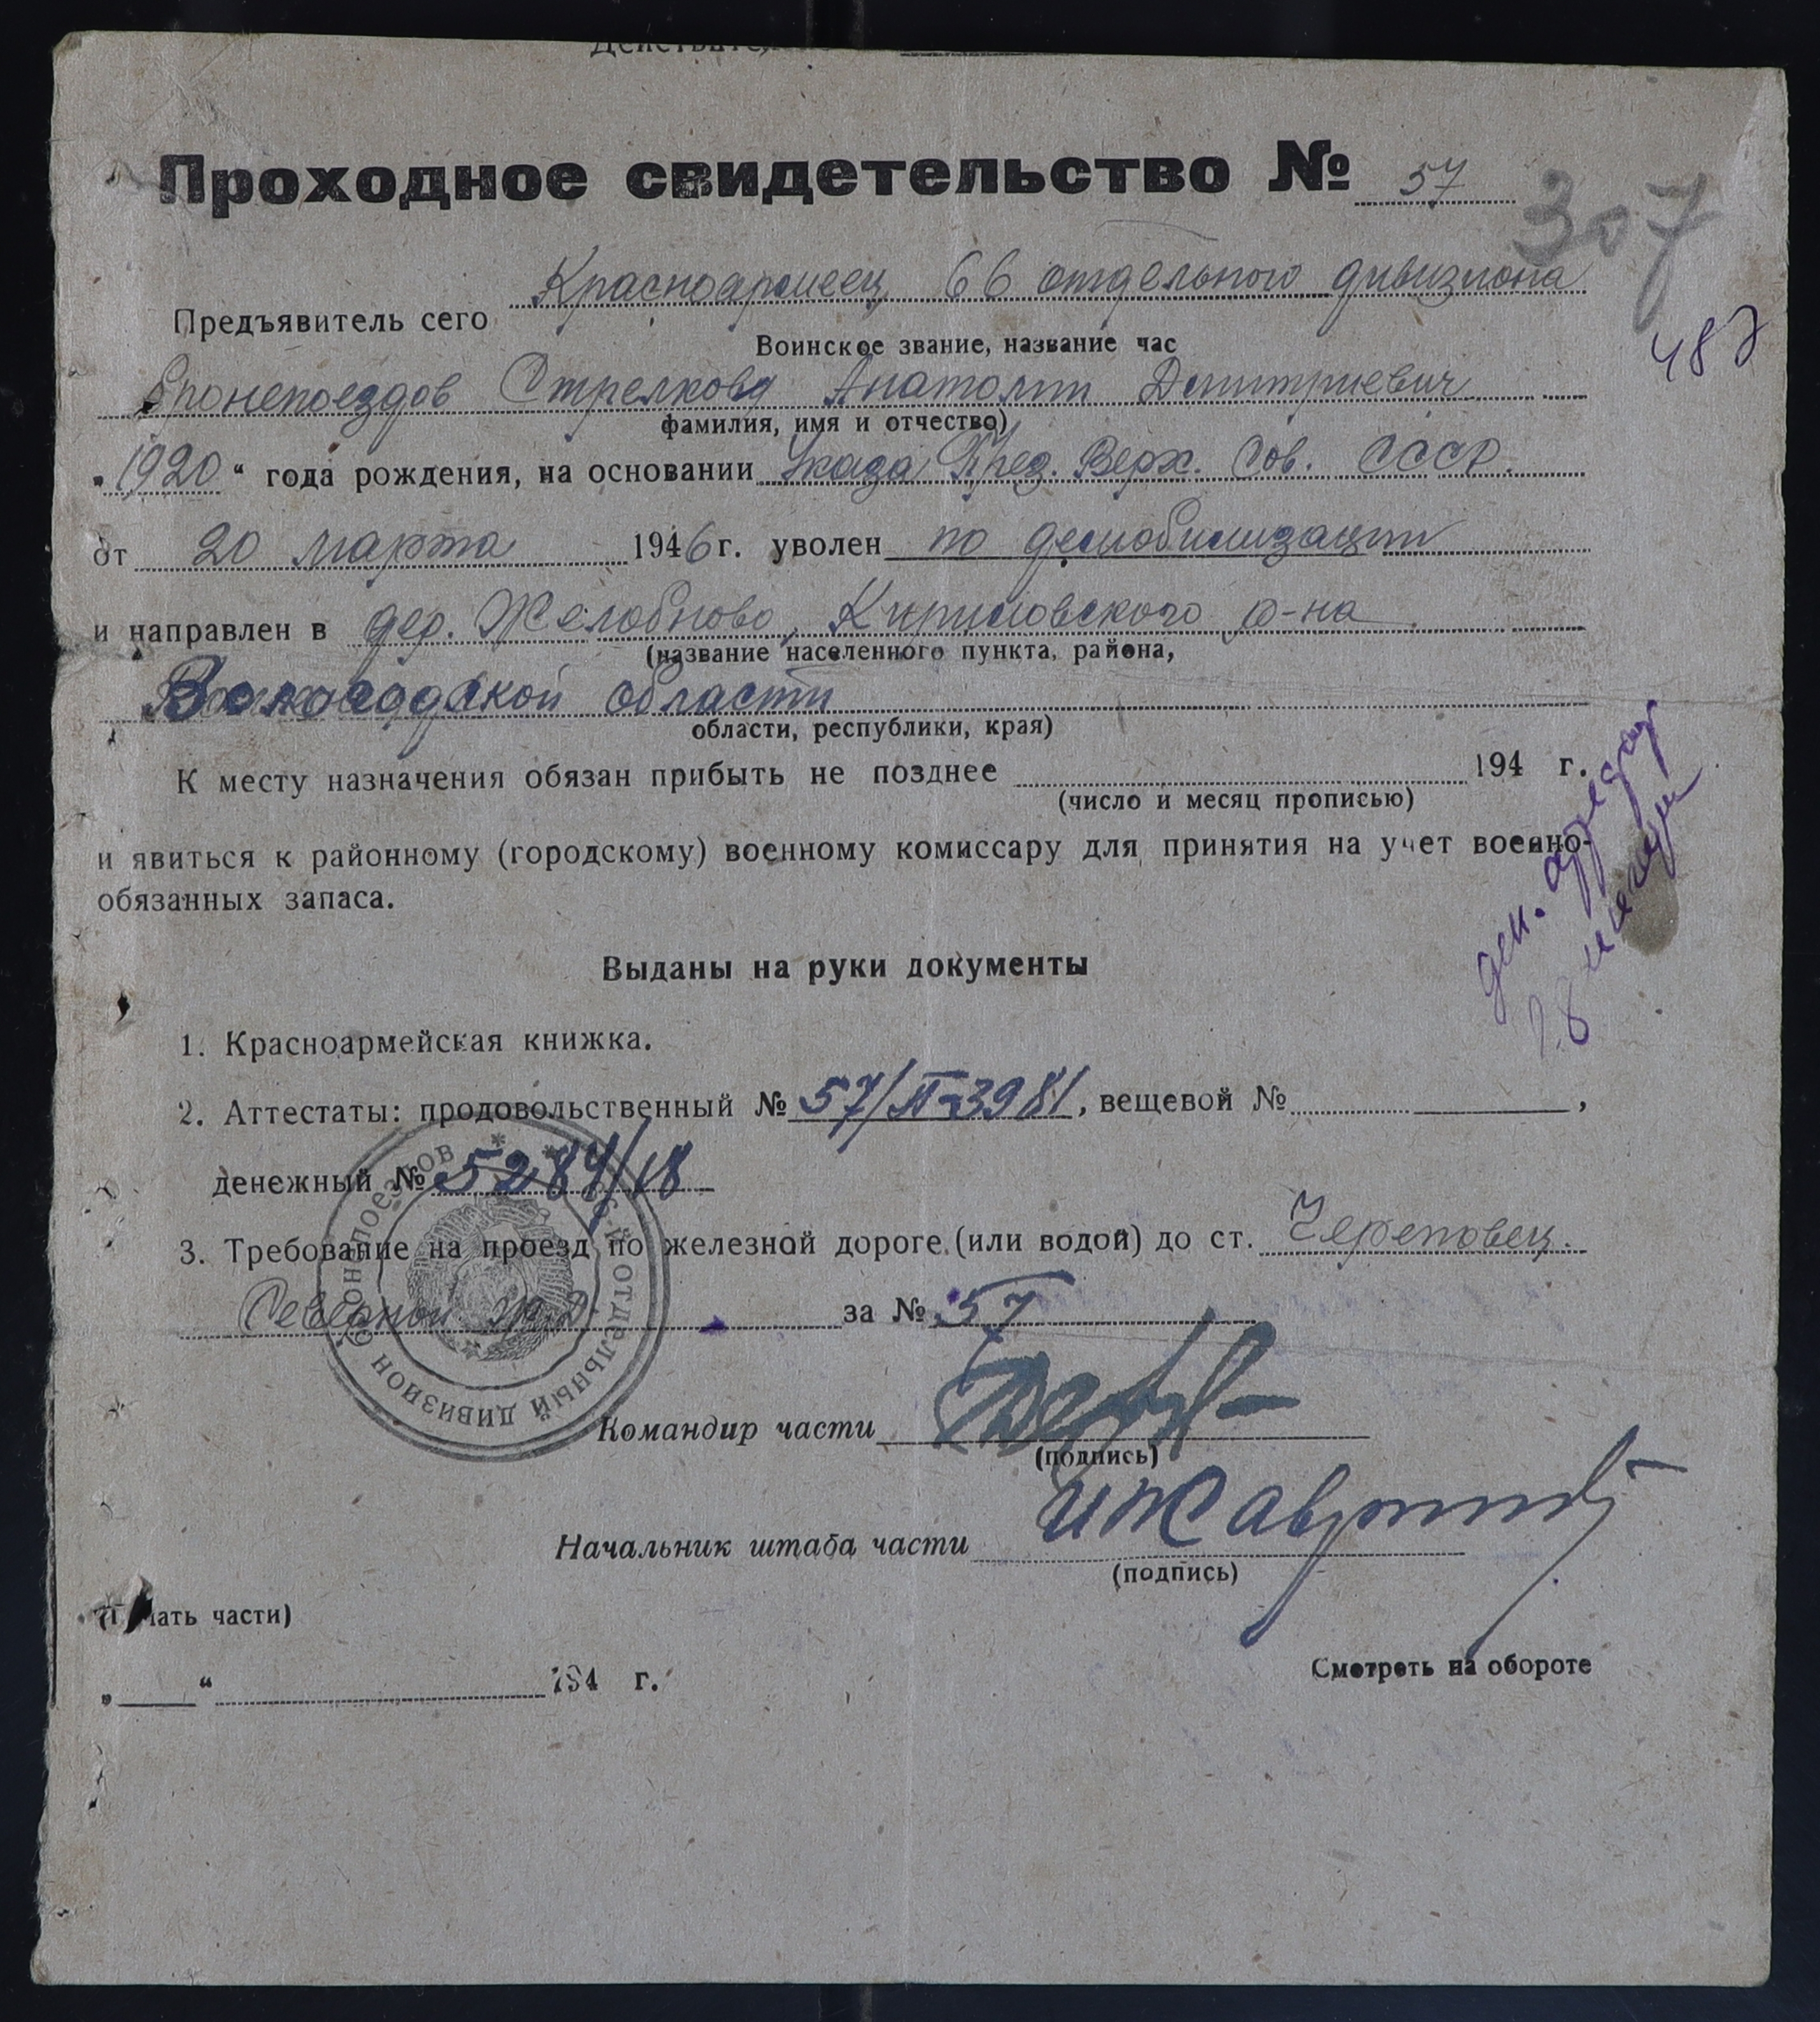 Проходное свидетельство № 57
307
Красноармеец 66 отдельного дивизиона
Предъявитель сего
Воинское звание, название час
487
бронепоездов Стрелков Анатолий Дмитриевич
фамилия, имя и отчество)
„1920“ года рождения, на основании Указа През. Верх. Сов. СССР.
от 20 марта 1946 г. уволен по демобилизации
и направлен в дер. Желобново, Кирилловского р-на
(название населенного пункта, района,
Вологодской области
области, республики, края)
К месту назначения обязан прибыть не позднее 194 г.
(число и месяц прописью)
и явиться к районному (городскому) военному комиссару для принятия на учет военно-
обязанных запаса.
Выданы на руки документы
1. Красноармейская книжка.
2. Аттестаты: продовольственный № 57/П-3981, вещевой № ,
денежный № 5284/18
3. Требование на проезд по железной дороге (или водой) до ст. Череповец.
Северной ж.д. за № 57
66-й ОТДЕЛЬНЫЙ ДИВИЗИОН БРОНЕПОЕЗДОВ
Командир части
(подпись)
Начальник штаба части
(подпись)
ать части)
„ “ 194 г.
Смотреть на обороте
ден.